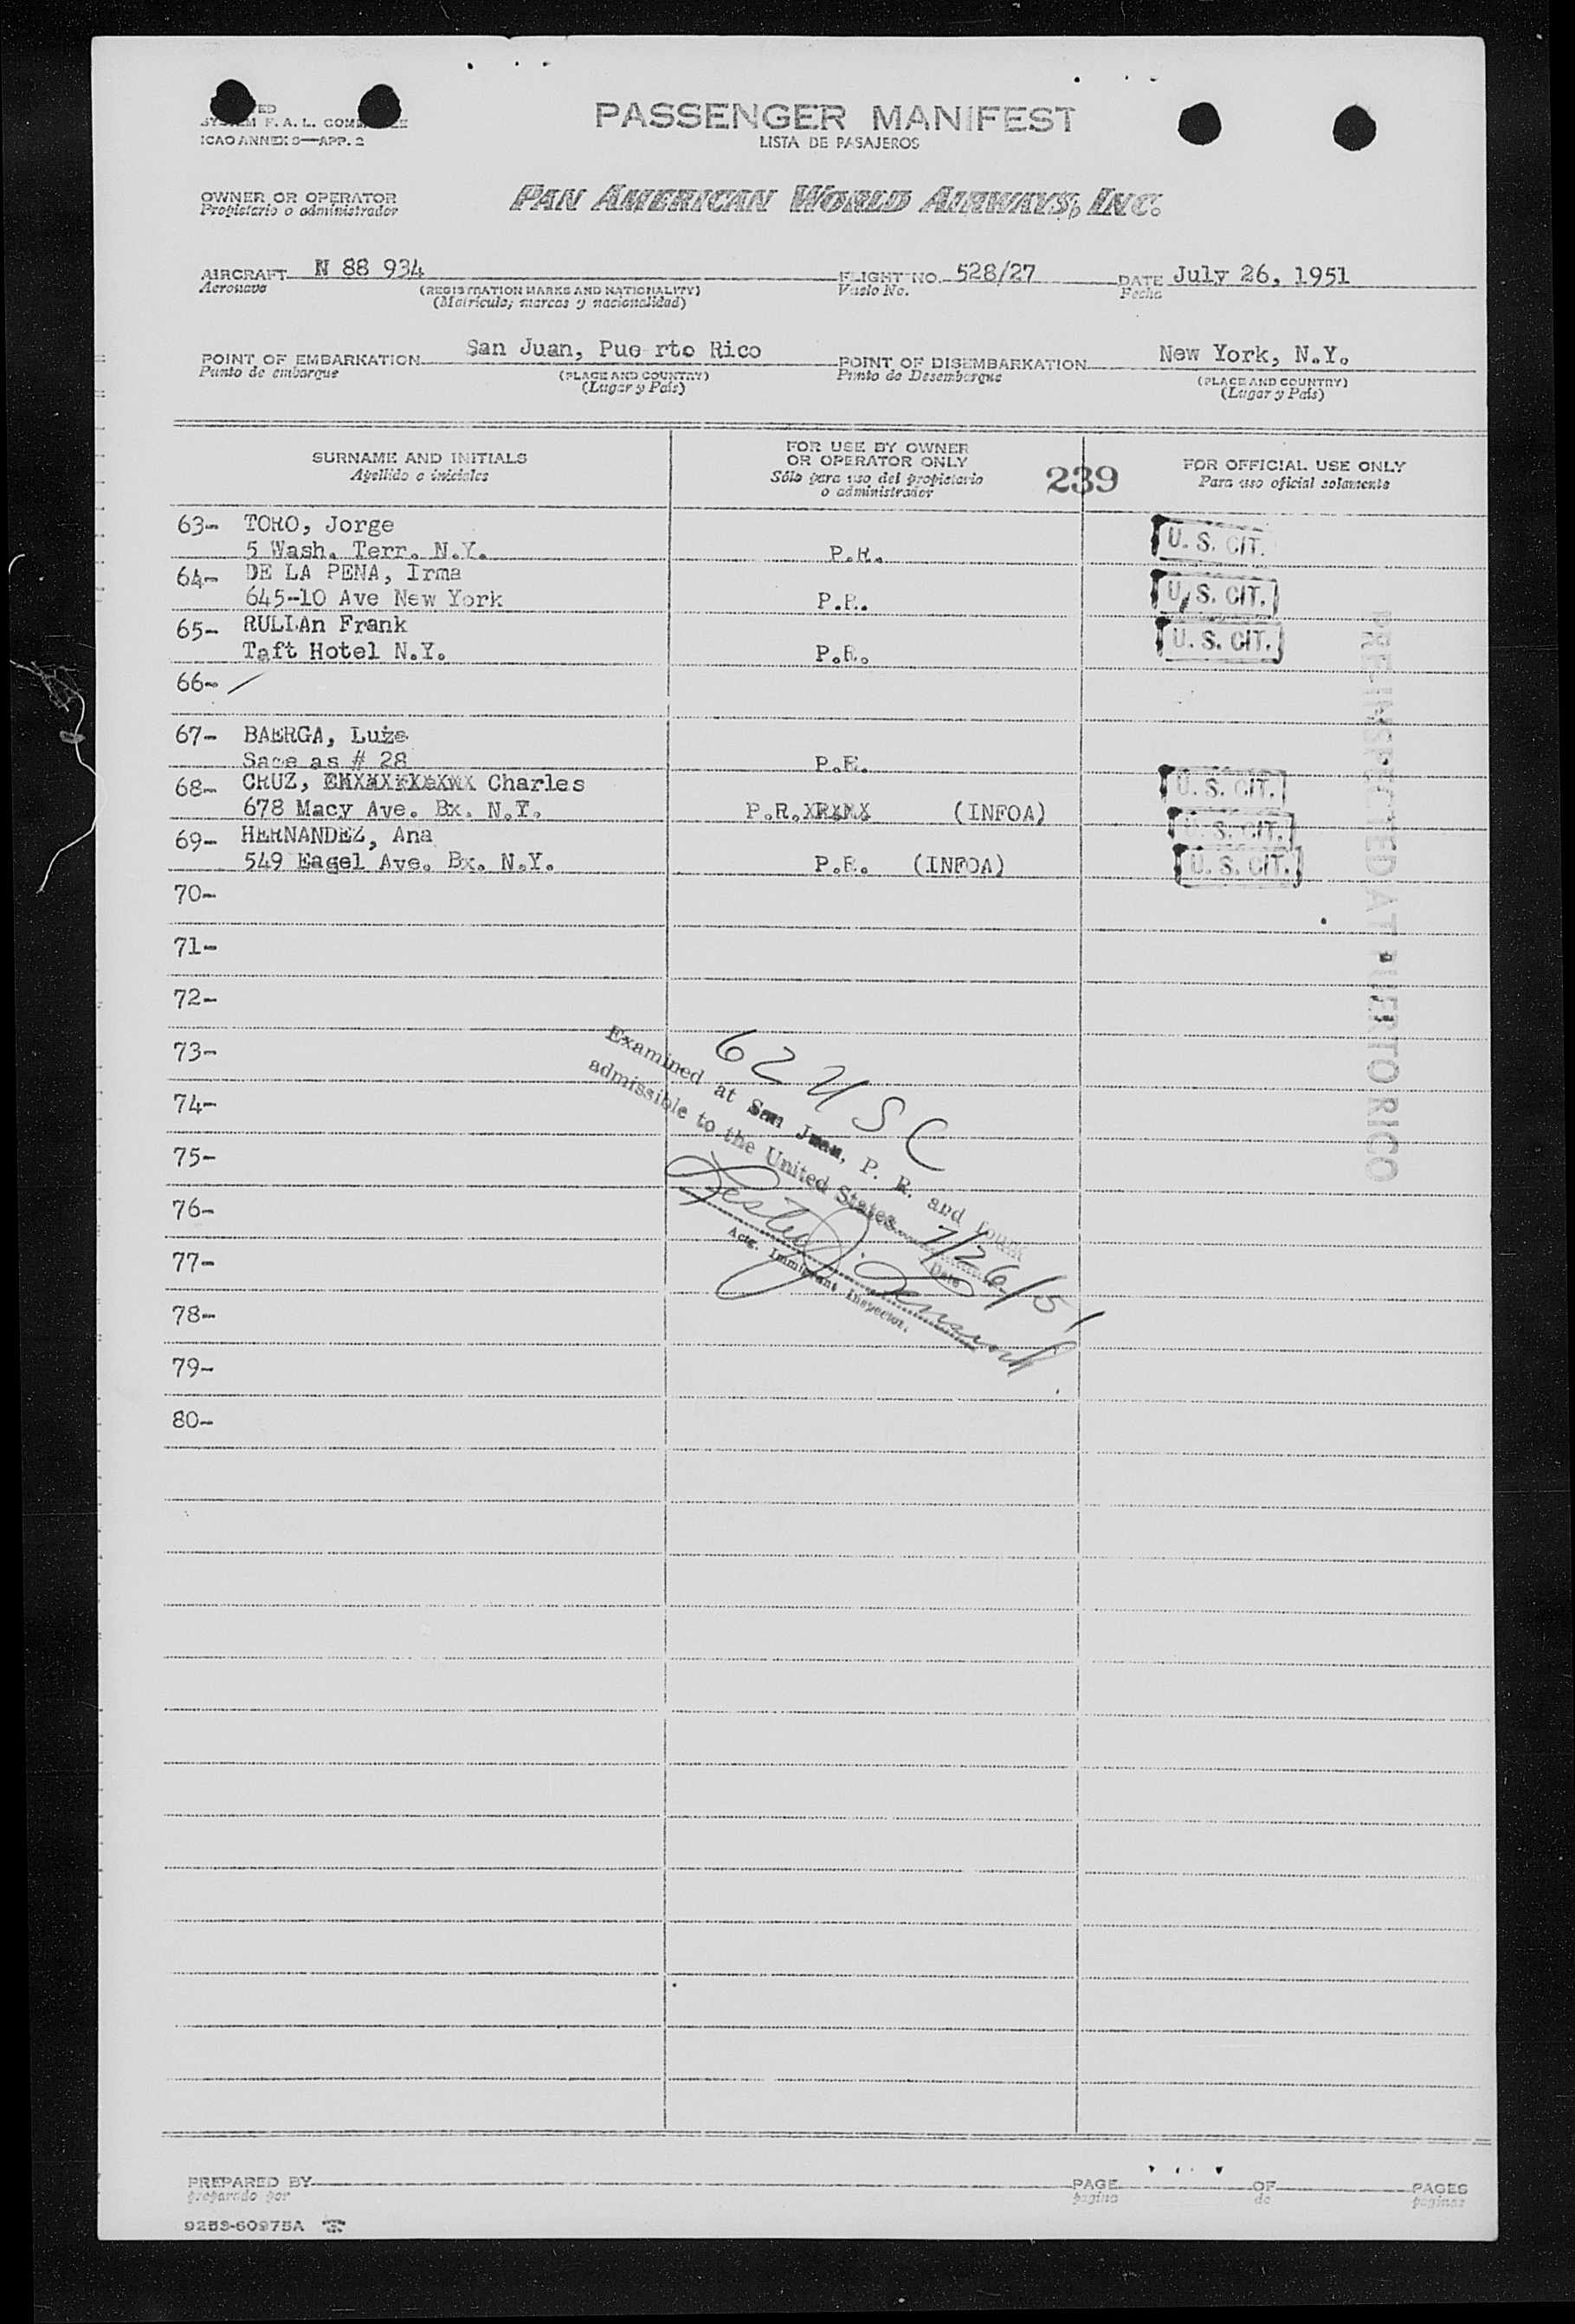 ICAO ANNEX 9—APP. 2
PASSENGER MANIFEST
LISTA DE PASAJEROS
OWNER OR OPERATOR
Propietario o administrador
PAN AMERICAN WORLD AIRWAYS, INC.
AIRCRAFT N 88 934 FLIGHT NO. 528/27 DATE July 26, 1951
Aeronave (REGISTRATION MARKS AND NATIONALITY) Vuelo No. Fecha
(Matricula; marcas y nacionalidad)
POINT OF EMBARKATION San Juan, Pue rto Rico POINT OF DISEMBARKATION New York, N.Y.
Punto de embarque (PLACE AND COUNTRY) Punto de Desembarque (PLACE AND COUNTRY)
(Lugar y País) (Lugar y País)
SURNAME AND INITIALS FOR USE BY OWNER OR OPERATOR ONLY 239 FOR OFFICIAL USE ONLY
Apellido e iniciales Sólo para uso del propietario o administrador Para uso oficial solamente
63- TORO, Jorge U. S. CIT.
5 Wash. Terr. N.Y. P.R.
64- DE LA PENA, Irma U. S. CIT.
645-10 Ave New York P.R.
65- RULLAn Frank U. S. CIT.
Taft Hotel N.Y. P.R.
66-
67- BAERGA, Luis
Same as # 28 P.R. U. S. CIT.
68- CRUZ, Charles
678 Macy Ave. Bx. N.Y. P.R. (INFOA) U. S. CIT.
69- HERNANDEZ, Ana
549 Eagel Ave. Bx. N.Y. P.R. (INFOA) U. S. CIT.
70-
71-
72-
73-
74-
75-
76-
77-
78-
79-
80-
PRE-INSPECTED AT PUERTO RICO
62 USC
Examined at San Juan, P. R. and found
admissible to the United States 7/26/51
Date
Actg. Immigrant Inspector.
PREPARED BY PAGE OF PAGES
preparado por pagina de paginas
9253-60975A